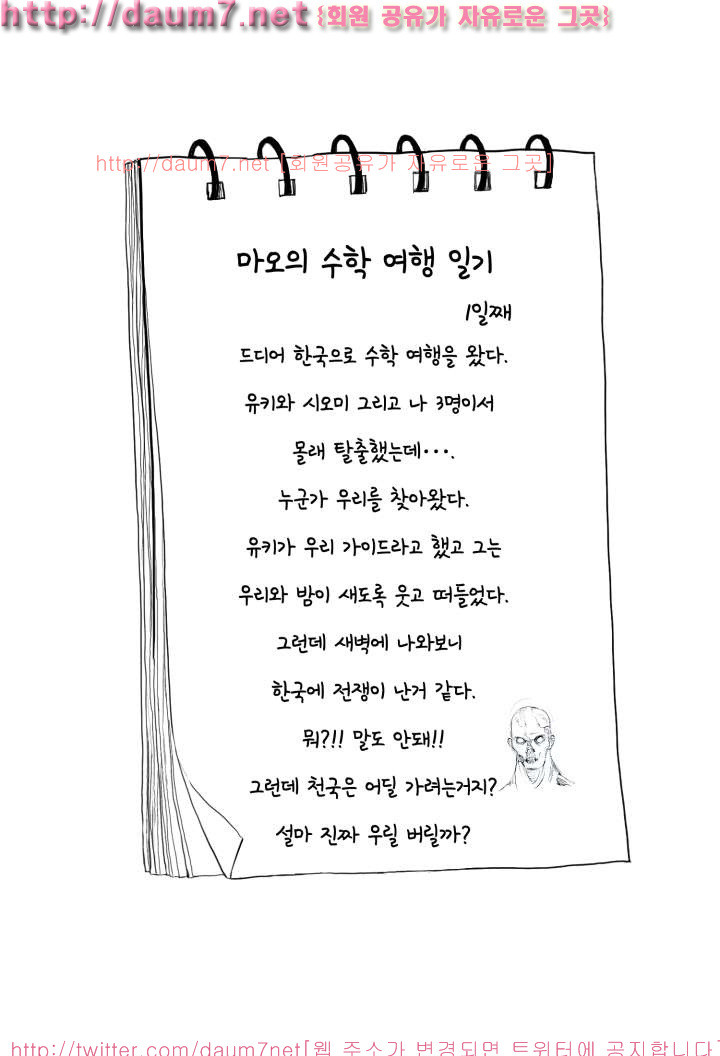 http://daum7.net {회원 공유가 자유로운 그곳}
http://daum7.net [회원공유가 자유로운 그곳]
마오의 수학 여행 일기
1일째
드디어 한국으로 수학 여행을 왔다.
유키와 시오미 그리고 나 3명이서
몰래 탈출했는데···.
누군가 우리를 찾아왔다.
유키가 우리 가이드라고 했고 그는
우리와 밤이 새도록 웃고 떠들었다.
그런데 새벽에 나와보니
한국에 전쟁이 난거 같다.
뭐?!! 말도 안돼!!
그런데 천국은 어딜 가려는거지?
설마 진짜 우릴 버릴까?
http://twitter.com/daum7net[웹 주소가 변경되면 트위터에 공지합니다]